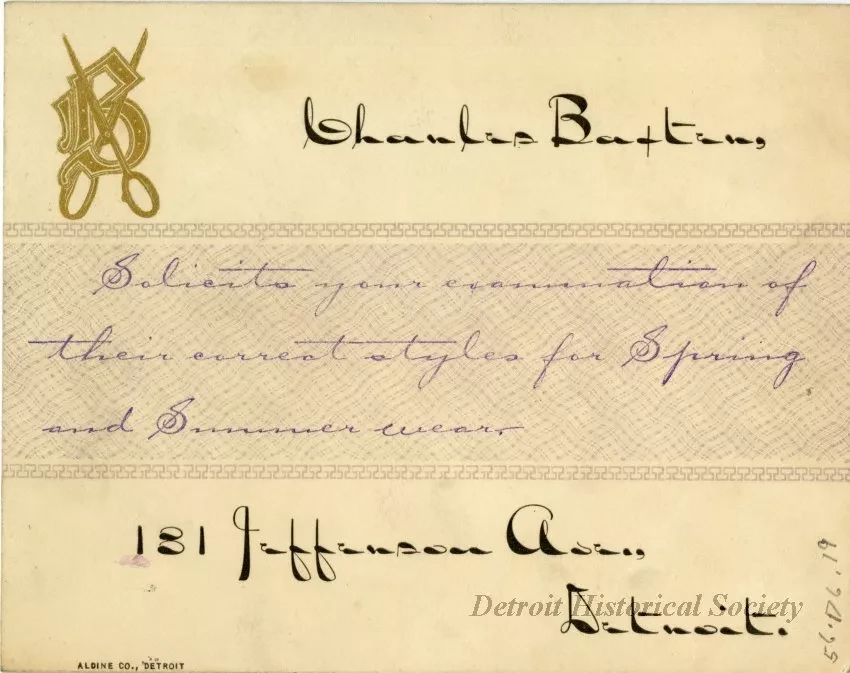 B
Charles Baxter,
Solicits your examination of
their correct styles for Spring
and Summer wear.
181 Jefferson Ave.,
Detroit.
Detroit Historical Society
ALDINE CO., DETROIT
56.D6.19